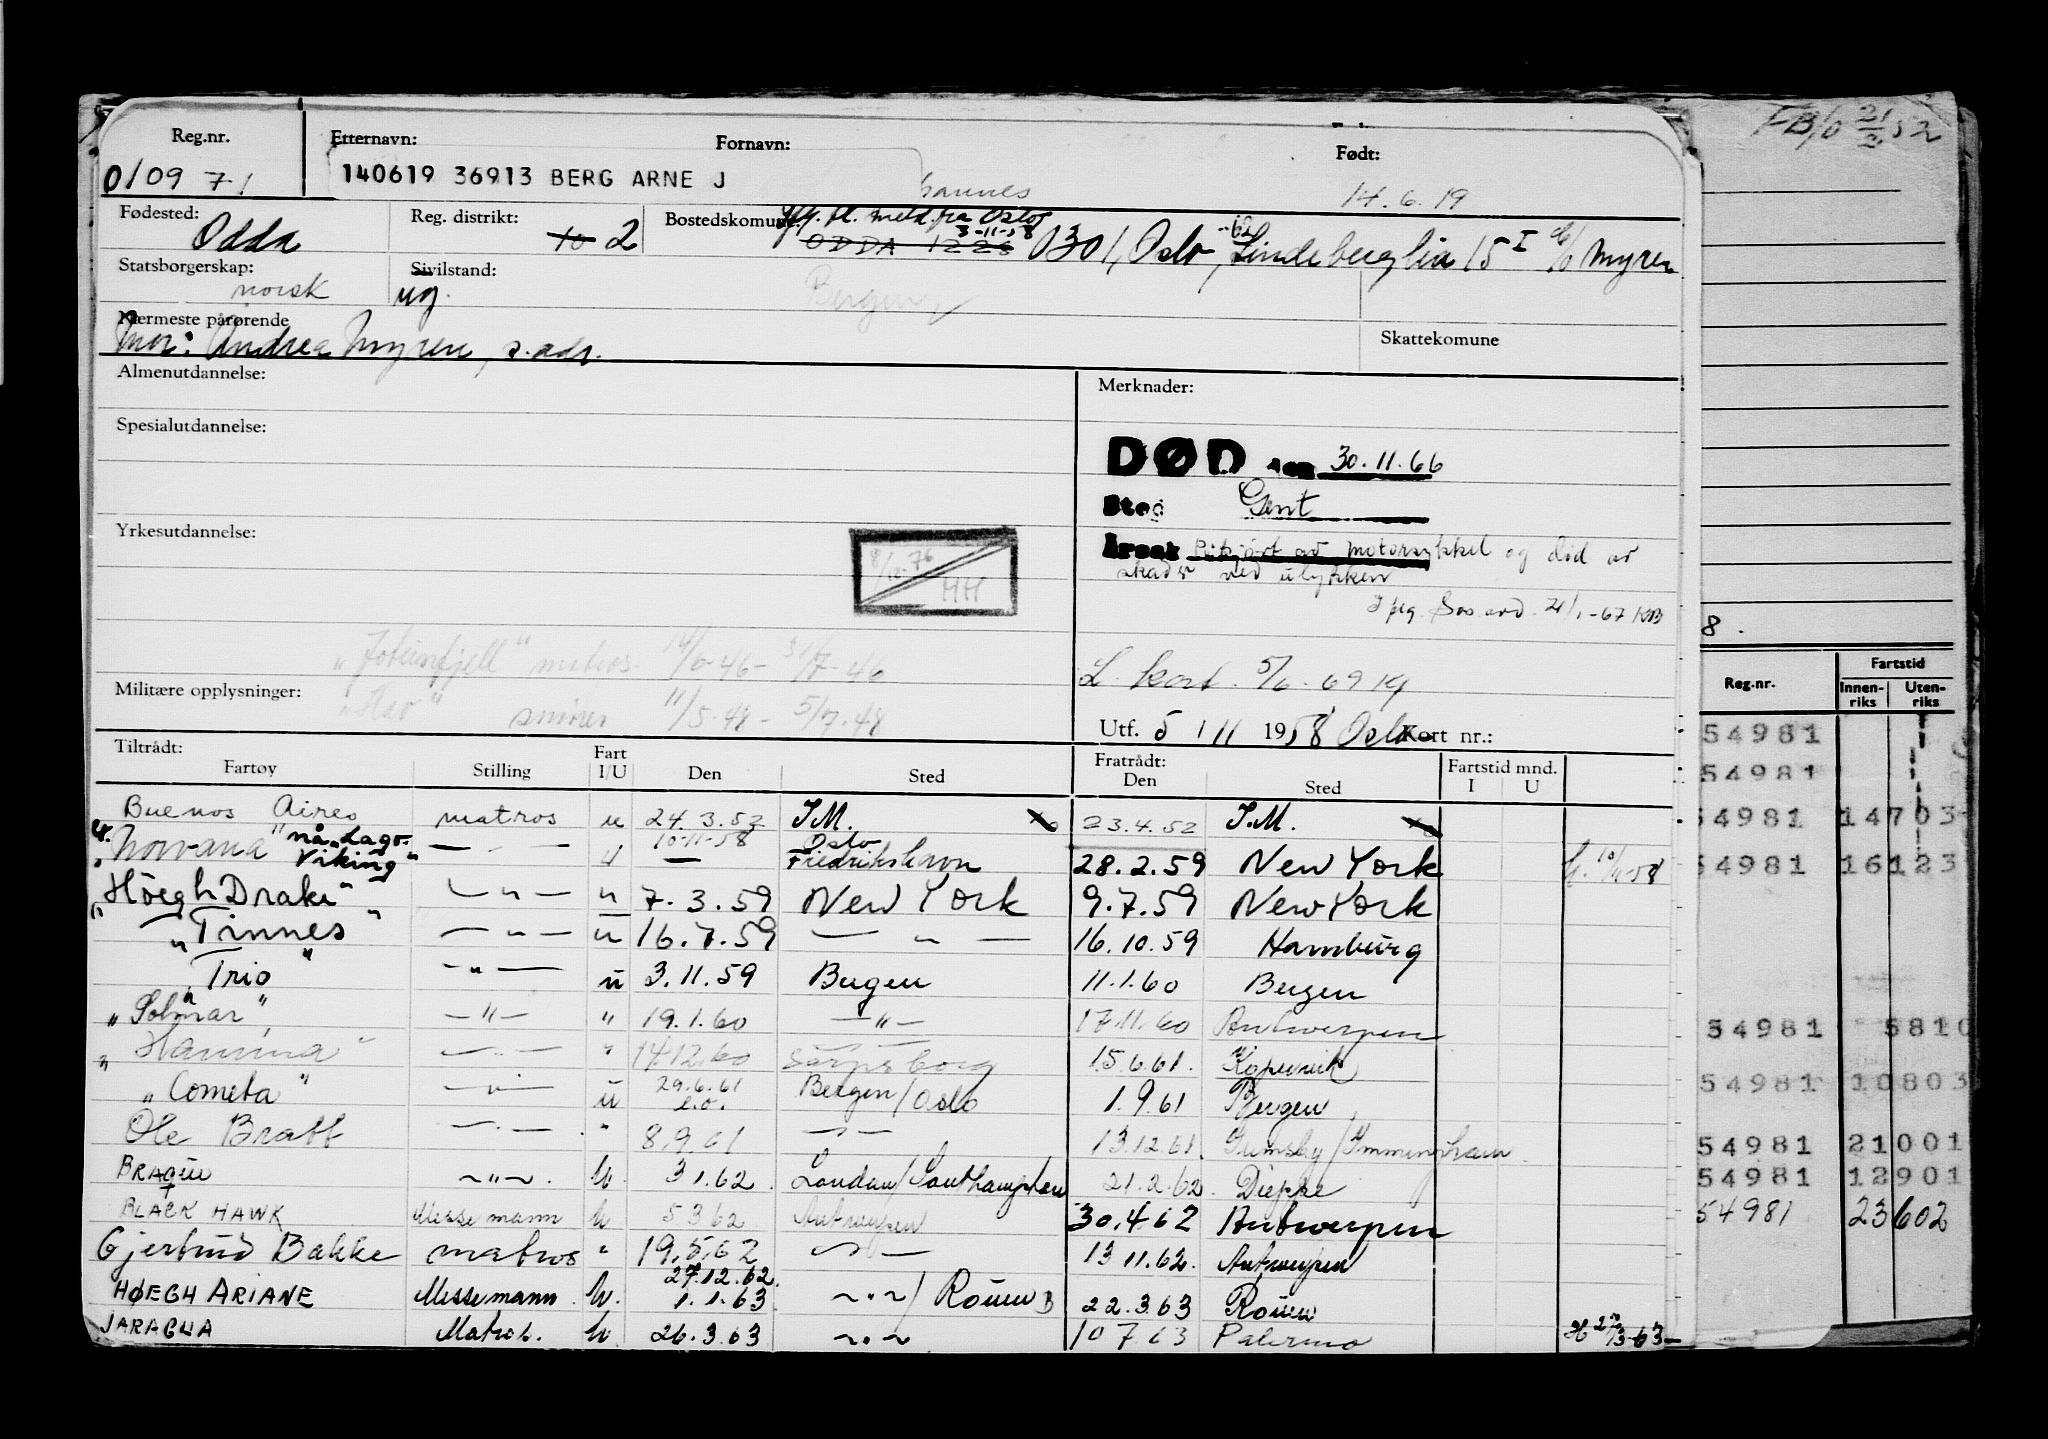 FB/6 21/2 52
Reg.nr. Etternavn: Fornavn: Født:
0109 71 140619 36913 BERG ARNE J hannes 14.6.19
Fødested: Reg. distrikt: Bostedskomune: flg. fl. meld. fra Oslo 3-11-58
Odda 10 2 ODDA 1226 0301, Oslo, Lindeberglia 15 I c/o Myren
Statsborgerskap: Sivilstand:
norsk ug. Bergen
Nærmeste pårørende
Mor: Andrea Myren, s. adr. Skattekomune
Almenutdannelse: Merknader:
Spesialutdannelse:
DØD den 30.11.66
Sted Gent
Yrkesutdannelse: Årsak Påkjørt av motorsykkel og død av
8/12.76 HH skader ved ulykken
21/1-67 KB
8.
"Jotunfjell" matros 14/6-46 - 31/7-46
L. kort. 5/6-69
Militære opplysninger: "Hav" smører 11/5-48 - 5/7-48
Utf. 5 / 11 1958 Oslo Kort nr.:
Reg.nr. Fartstid
Innenriks Utenriks
Tiltrådt: Fratrådt:
Fartøy Stilling Fart I/U Den Sted Den Sted Fartstid mnd. I U
Buenos Aires matros u 24.3.52 I.M. 23.4.52 I.M.
"Norvana" nå "Lago-Viking" — " — u 10-11-58 Oslo Fredrikshavn 28.2.59 New York
"Høegh Drake" — " — " 7.3.59 New York 9.7.59 New York
"Tinnes" — " — u 16.7.59 — " — 16.10.59 Hamburg
"Trio" — " — u 3.11.59 Bergen 11.1.60 Bergen
"Solmar" — " — " 19.1.60 — " — 17.11.60 Antwerpen
"Hamina" — " — " 14.12.60 Sarpsborg 15.6.61. Kopervik
"Cometa" — " — u 29.6.61 e.o. Bergen/Oslo 1.9.61 Bergen
Ole Bratt — " — " 8.9.61 — " — 13.12.61. Grimsby/Immingham
BRAGE — " — u. 3.1.62. London/Southampton 21.2.62. Dieppe
BLACK HAWK Messemann u 5.3.62 Antwerpen 30.4.62 Antwerpen
Gjertrud Bakke matros " 19.5.62 — " — 13.11.62. Antwerpen
HØEGH ARIANE Messemann u. 27.12.62. 1.1.63 — " — / Rouen B 22.3.63 Rouen
JARAGUA Matros. u 26.3.63 — " — 10.7.63 Palermo H 27/3-63
54981
54981
54981 14703
54981 16123
54981 5810
54981 10803
54981 21001
54981 12901
54981 23602